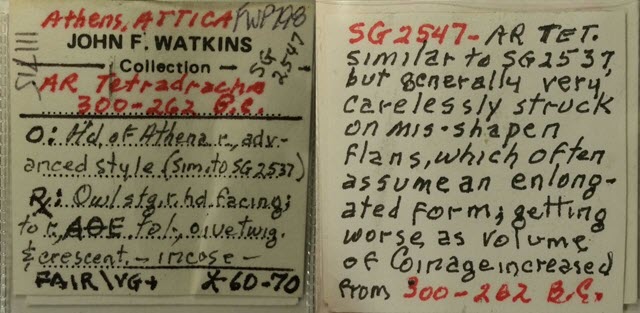 Athens, ATTICA FWP 198
JOHN F. WATKINS
Collection
SG 2547
AR Tetradrachm
300-262 B.C.
O: Hd of Athena r., adv-
anced style (sim. to SG 2537)
R: Owl stg. r. hd. facing;
to r., AOE to l., olive twig.
& crescent. - incose -
FAIR\VG+ X-60-70
SG2547- AR TET.
similar to SG 2537,
but generally very
carelessly struck
on mis-shapen
flans, which often
assume an enlong-
ated form; getting
worse as volume
of Coinage increased
from 300-262 B.C.